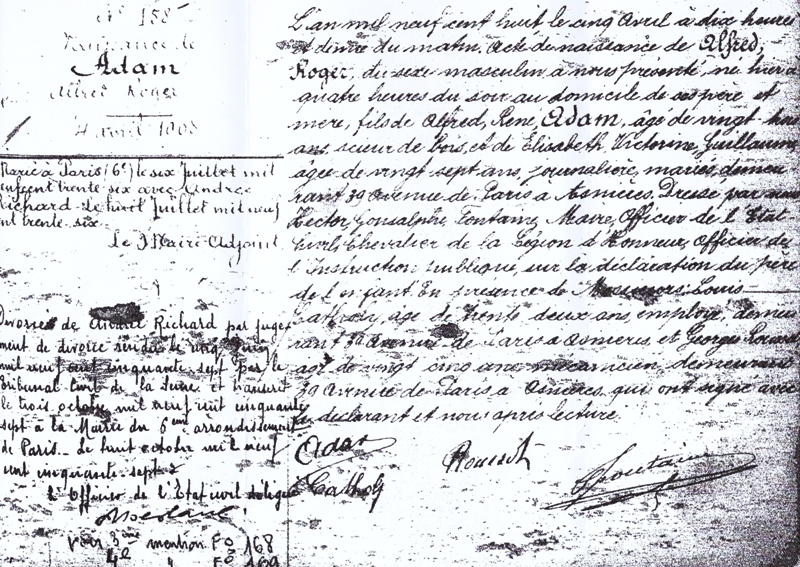 N° 158
Naissance de
Adam
Alfred Roger
4 avril 1908
Marié à Paris (6e) le six Juillet mil
neufcent trente six avec Andrée
Richard. Le huit Juillet mil neuf
cent trente six.
Le Maire Adjoint
Divorcé de Andrée Richard par juge
ment de divorce rendu le cinq
mil neuf cent cinquante sept par le
Tribunal Civil de la Seine et transcrit
le trois octobre mil neuf cent cinquante
sept à la Mairie du 6eme arrondissement
de Paris. Le huit octobre mil neuf
cent cinquante sept
L'Officier de l'Etat civil délégué
Voir 3eme mention Fo 168
4e " Fo 169
L'an mil neuf cent huit, le cinq Avril à dix heures
et demie du matin. Acte de naissance de Alfred,
Roger, du sexe masculin à nous présenté, né hier à
quatre heures du soir au domicile de ses père et
mère, fils de Alfred, René, Adam, âgé de vingt huit
ans scieur de bois, et de Elisabeth, Victorine, Guillaume
âgée de vingt sept ans, journalière, mariés, demeu
rant 39 avenue de Paris à Asnières. Dressé par nous
Hector, Gonsalphe, Fontaine, Maire, Officier de l'Etat
Civil, Chevalier de la Légion d'Honneur, Officier de
l'Instruction publique, sur la déclaration du père
de l'enfant En présence de Messieurs: Louis
âgé de trente deux ans, employé, demeu
rant 39 Avenue de Paris à Asnières et Georges
âgé de vingt cinq ans mécanicien demeurant
39 Avenue de Paris à Asnières, qui ont signé avec
le déclarant et nous après lecture.
Adam
Roussel
Fontaine